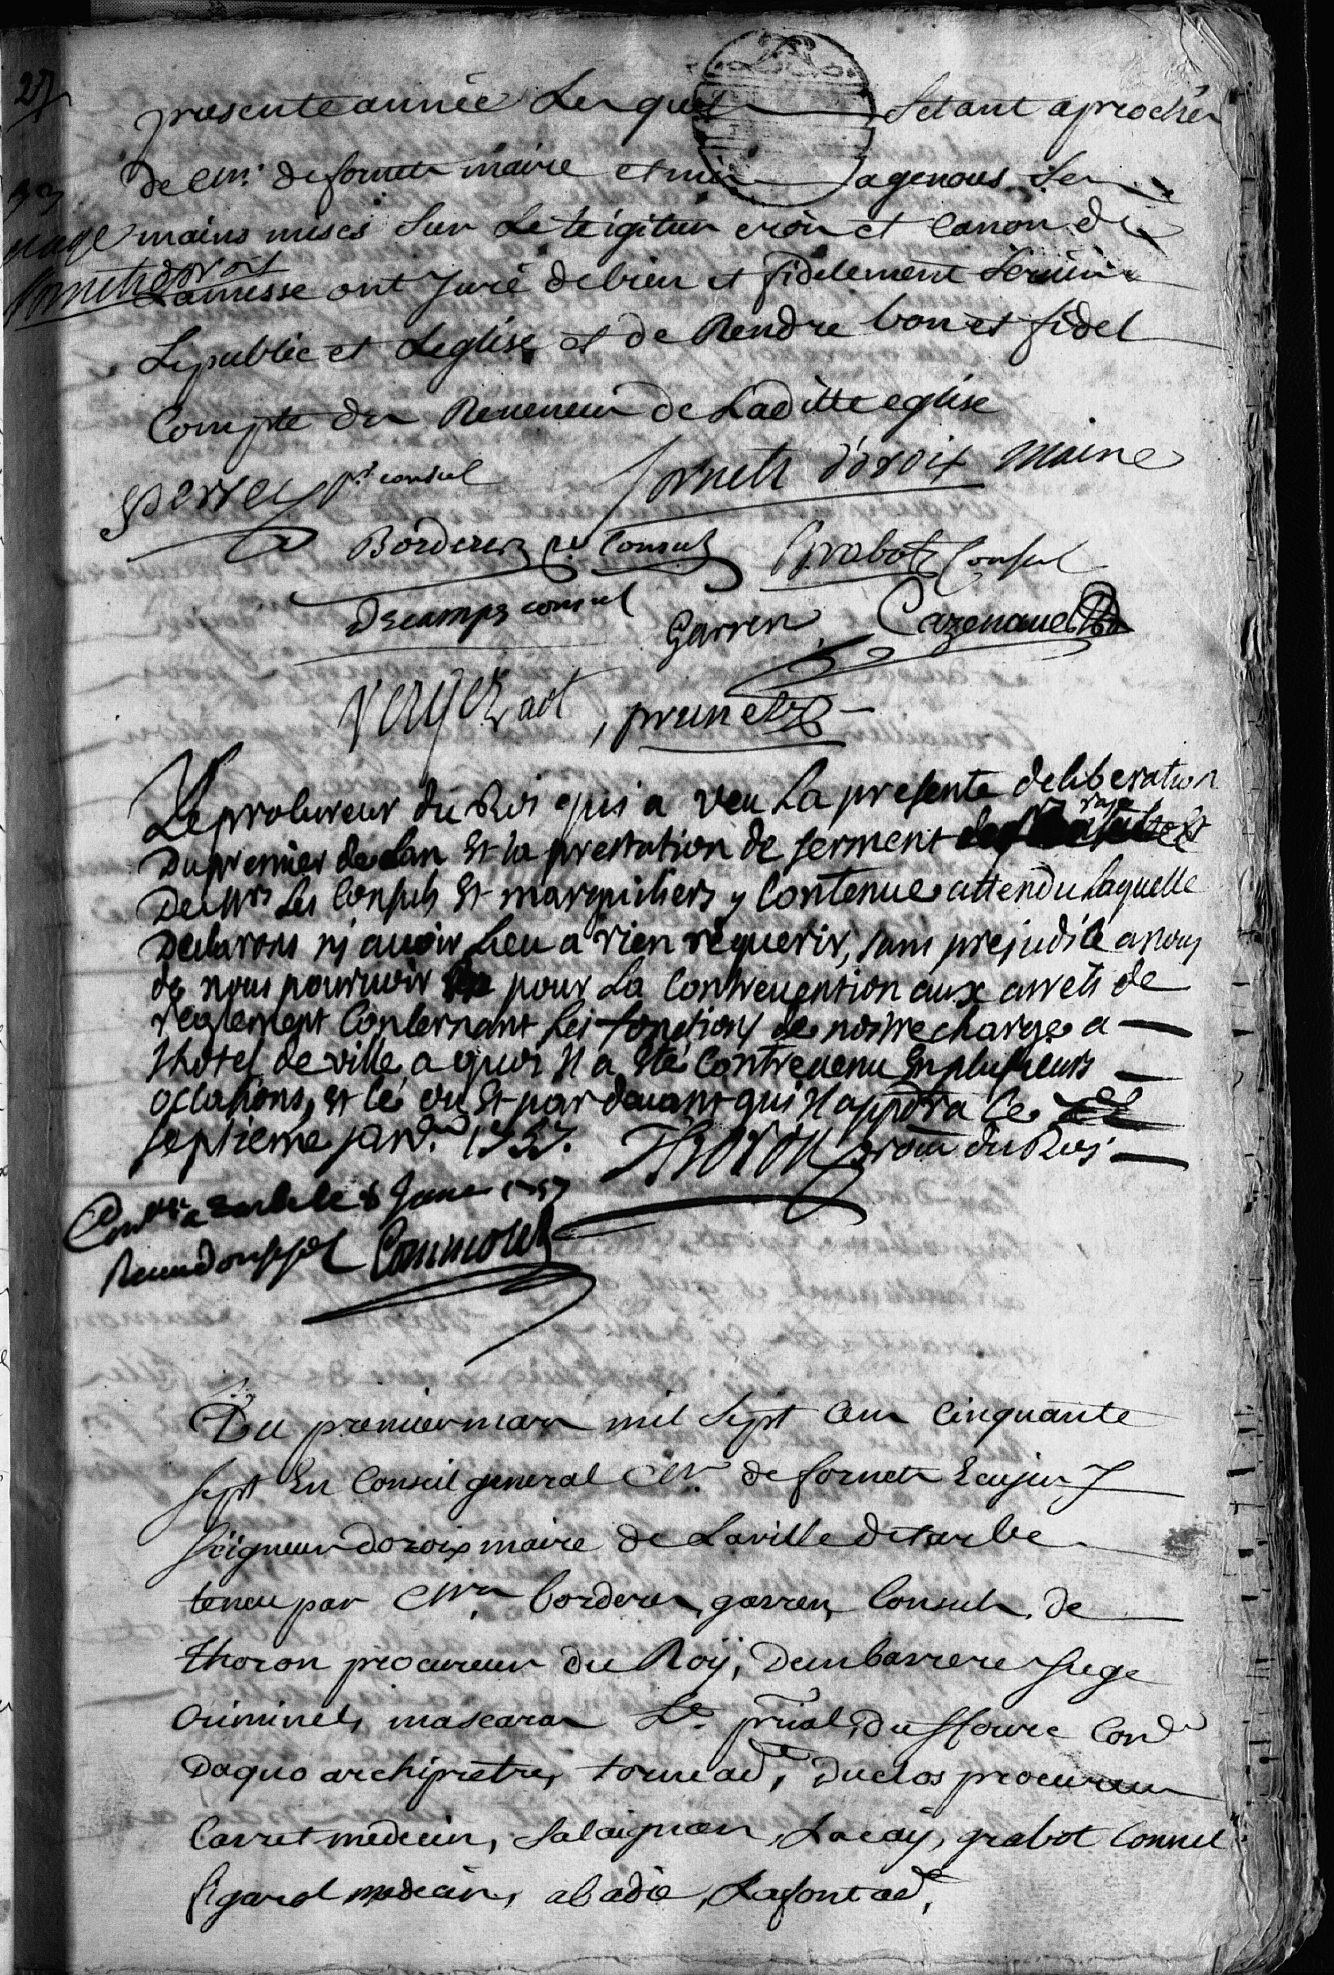 27
presente année Lesquels Setant aprochés
de Mr. defornets maire et mis agenous Les
mains mises Sur Le te igitur croix et Canon de
Lamesse ont Juré debien et fidelement Servir
Lepublic et Leglise et de Rendre bon et fidel
Compte des Reveneus de Laditte eglise
perrey pr consul fornets d'oroix Maire
Borderes Consul Grabot Consul
Decamps consul Garren Cazenave
Verges adt, prunet
Le procureur du Roi qui a veu La presente deliberation
Du premier de Lan Et la prestation de serment
De Mrs Les Consuls Et marguilliers y Contenue attendu Laquelle
Declarons ny avoir Lieu a rien requerir, sans prejudice a nous
de nous pourvoir pour La Contravention aux arrets de
reglement Concernant Les fonctions de nostre charge a
lhotel de ville a quoi Il a eté Contrevenu En plusieurs
occasions, Et ce ou Et par devant qui Il appdra ce
septieme janer. 1757. Thoron procur du Roi
a tarbe le 8 Janer 1757
Commoles
Du premier mars mil Sept Cens Cinquante
Sept En Conseil general Mr. de fornets Ecuyer
Seigneur doroix maire de Laville detarbe
teneu par Mrs. borderes, garren, Consuls, de
thoron procureur du Roy, Dembarrere Juge
Criminel, mascaras Lt. prñal, Duffourc Cond
Daguo archipretre, tornē adt, Duclos procureur
Carret medecin, Salaignac, Lacay, grabot Connel
figarol medecin, abadie, Lafont adt,